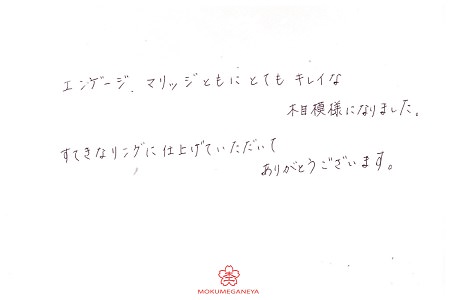 エンゲージ、マリッジともに とても キレイな
木目模様になりました。
すてきなリングに仕上げていただいて
ありがとうございます。
MOKUMEGANEYA